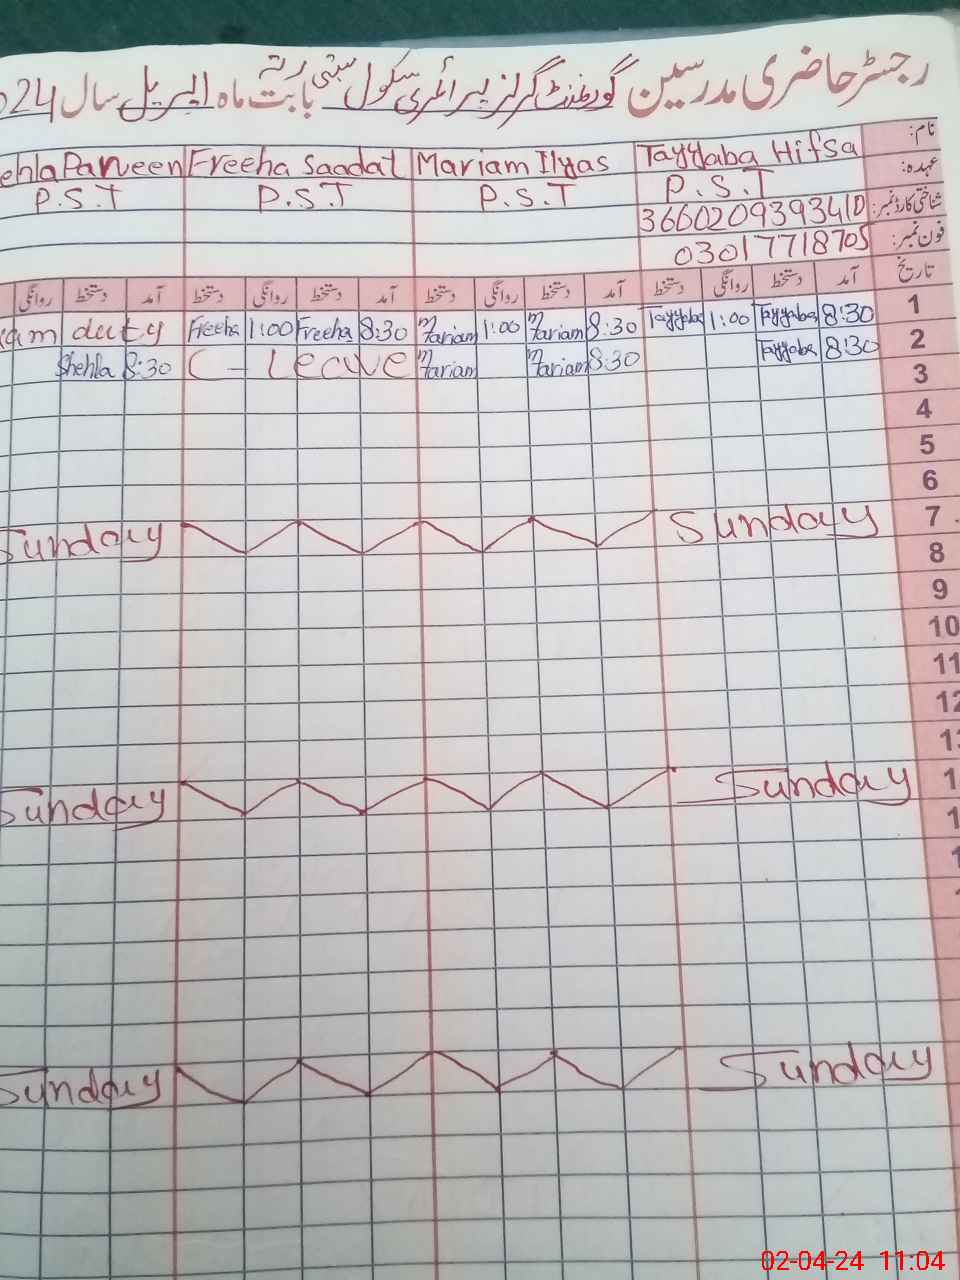 رجسٹر حاضری مدرسین گورنمنٹ گرلز پرائمری سکول بستی رتہ بابت ماہ اپریل سال 24
نام: Tayyaba Hifsa Mariam Ilyas Freeha Saadat ehla Parveen
عہدہ: P.S.T P.S.T P.S.T P.S.T
شناختی کارڈ نمبر: 3660209393410
فون نمبر: 03017718705
تاریخ آمد دستخط روانگی دستخط آمد دستخط روانگی دستخط آمد دستخط روانگی دستخط آمد دستخط روانگی
1 8:30 Tayyaba 1:00 Tayyaba 8:30 Mariam 1:00 Mariam 8:30 Freeha 1:00 Freeha am duty
2 8:30 Tayyaba 8:30 Mariam Mariam C - Leave 8:30 Shehla
3
4
5
6
7 Sunday Sunday
8
9
10
11
12
13
1 Sunday Sunday
1
1
Sunday Sunday
02-04-24 11:04